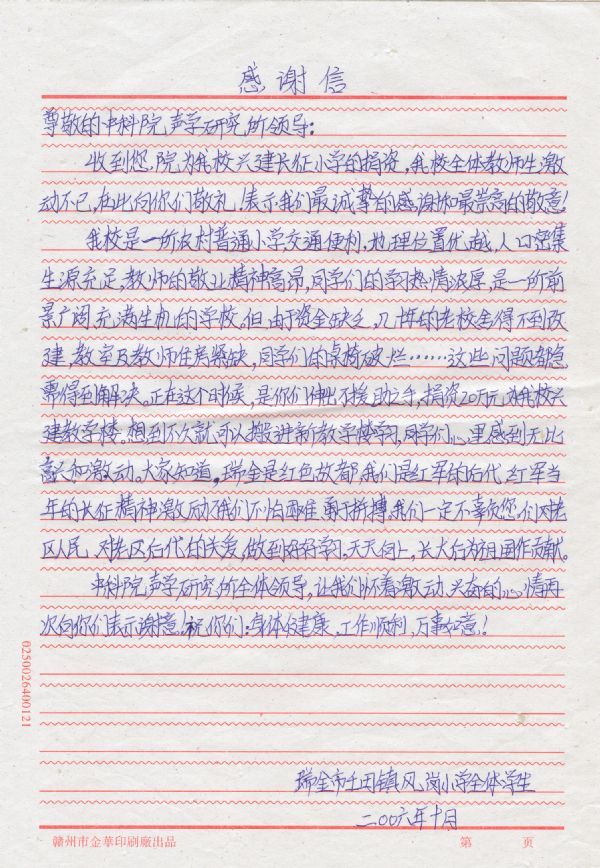 感谢信
尊敬的中科院声学研究所领导：
收到您院为我校兴建长征小学的捐资，我校全体教师生激
动不已，在此向你们敬礼！表示我们最诚挚的感谢和最崇高的敬意！
我校是一所农村普通小学交通便利，地理位置优越，人口密集
生源充足，教师的敬业精神高昂，同学们的学习热情浓厚，是一所前
景广阔充满生机的学校，但，由于资金缺乏，几十年的老校舍得不到改
建，教室及教师住房紧缺，同学们的桌椅破烂……这些问题都急
需得到解决。正在这个时候，是你们伸出不援助之手，捐资20万元为我校兴
建教学楼。想到不久就可以搬进新教学楼学习，同学们心里感到无比
高兴和激动。大家知道，瑞金是红色故都，我们是红军的后代，红军当
年的长征精神激励我们不怕困难勇于拼搏，我们一定不辜负您们对老
区人民，对老区后代的关爱，做到好好学习，天天向上，长大后为祖国作贡献。
中科院声学研究所全体领导，让我们怀着激动、兴奋的心情再
次向你们表示谢意！祝你们：身体健康。工作顺利，万事如意！
瑞金市壬田镇凤岗小学全体学生
二00六年十月
0250026400121
赣州市金華印刷廠出品 第 页